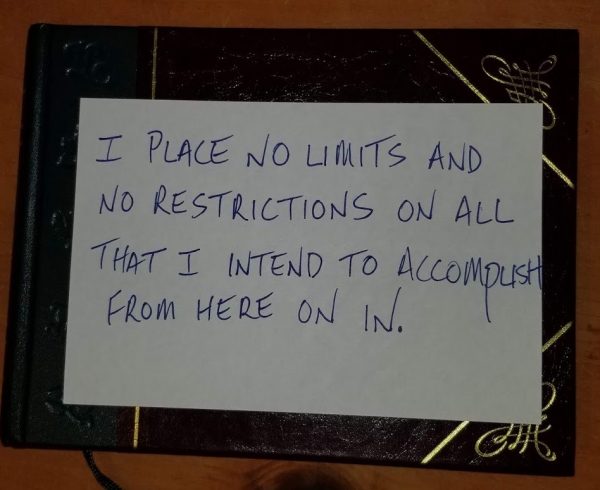 I PLACE NO LIMITS AND
NO RESTRICTIONS ON ALL
THAT I INTEND TO ACCOMPLISH
FROM HERE ON IN.